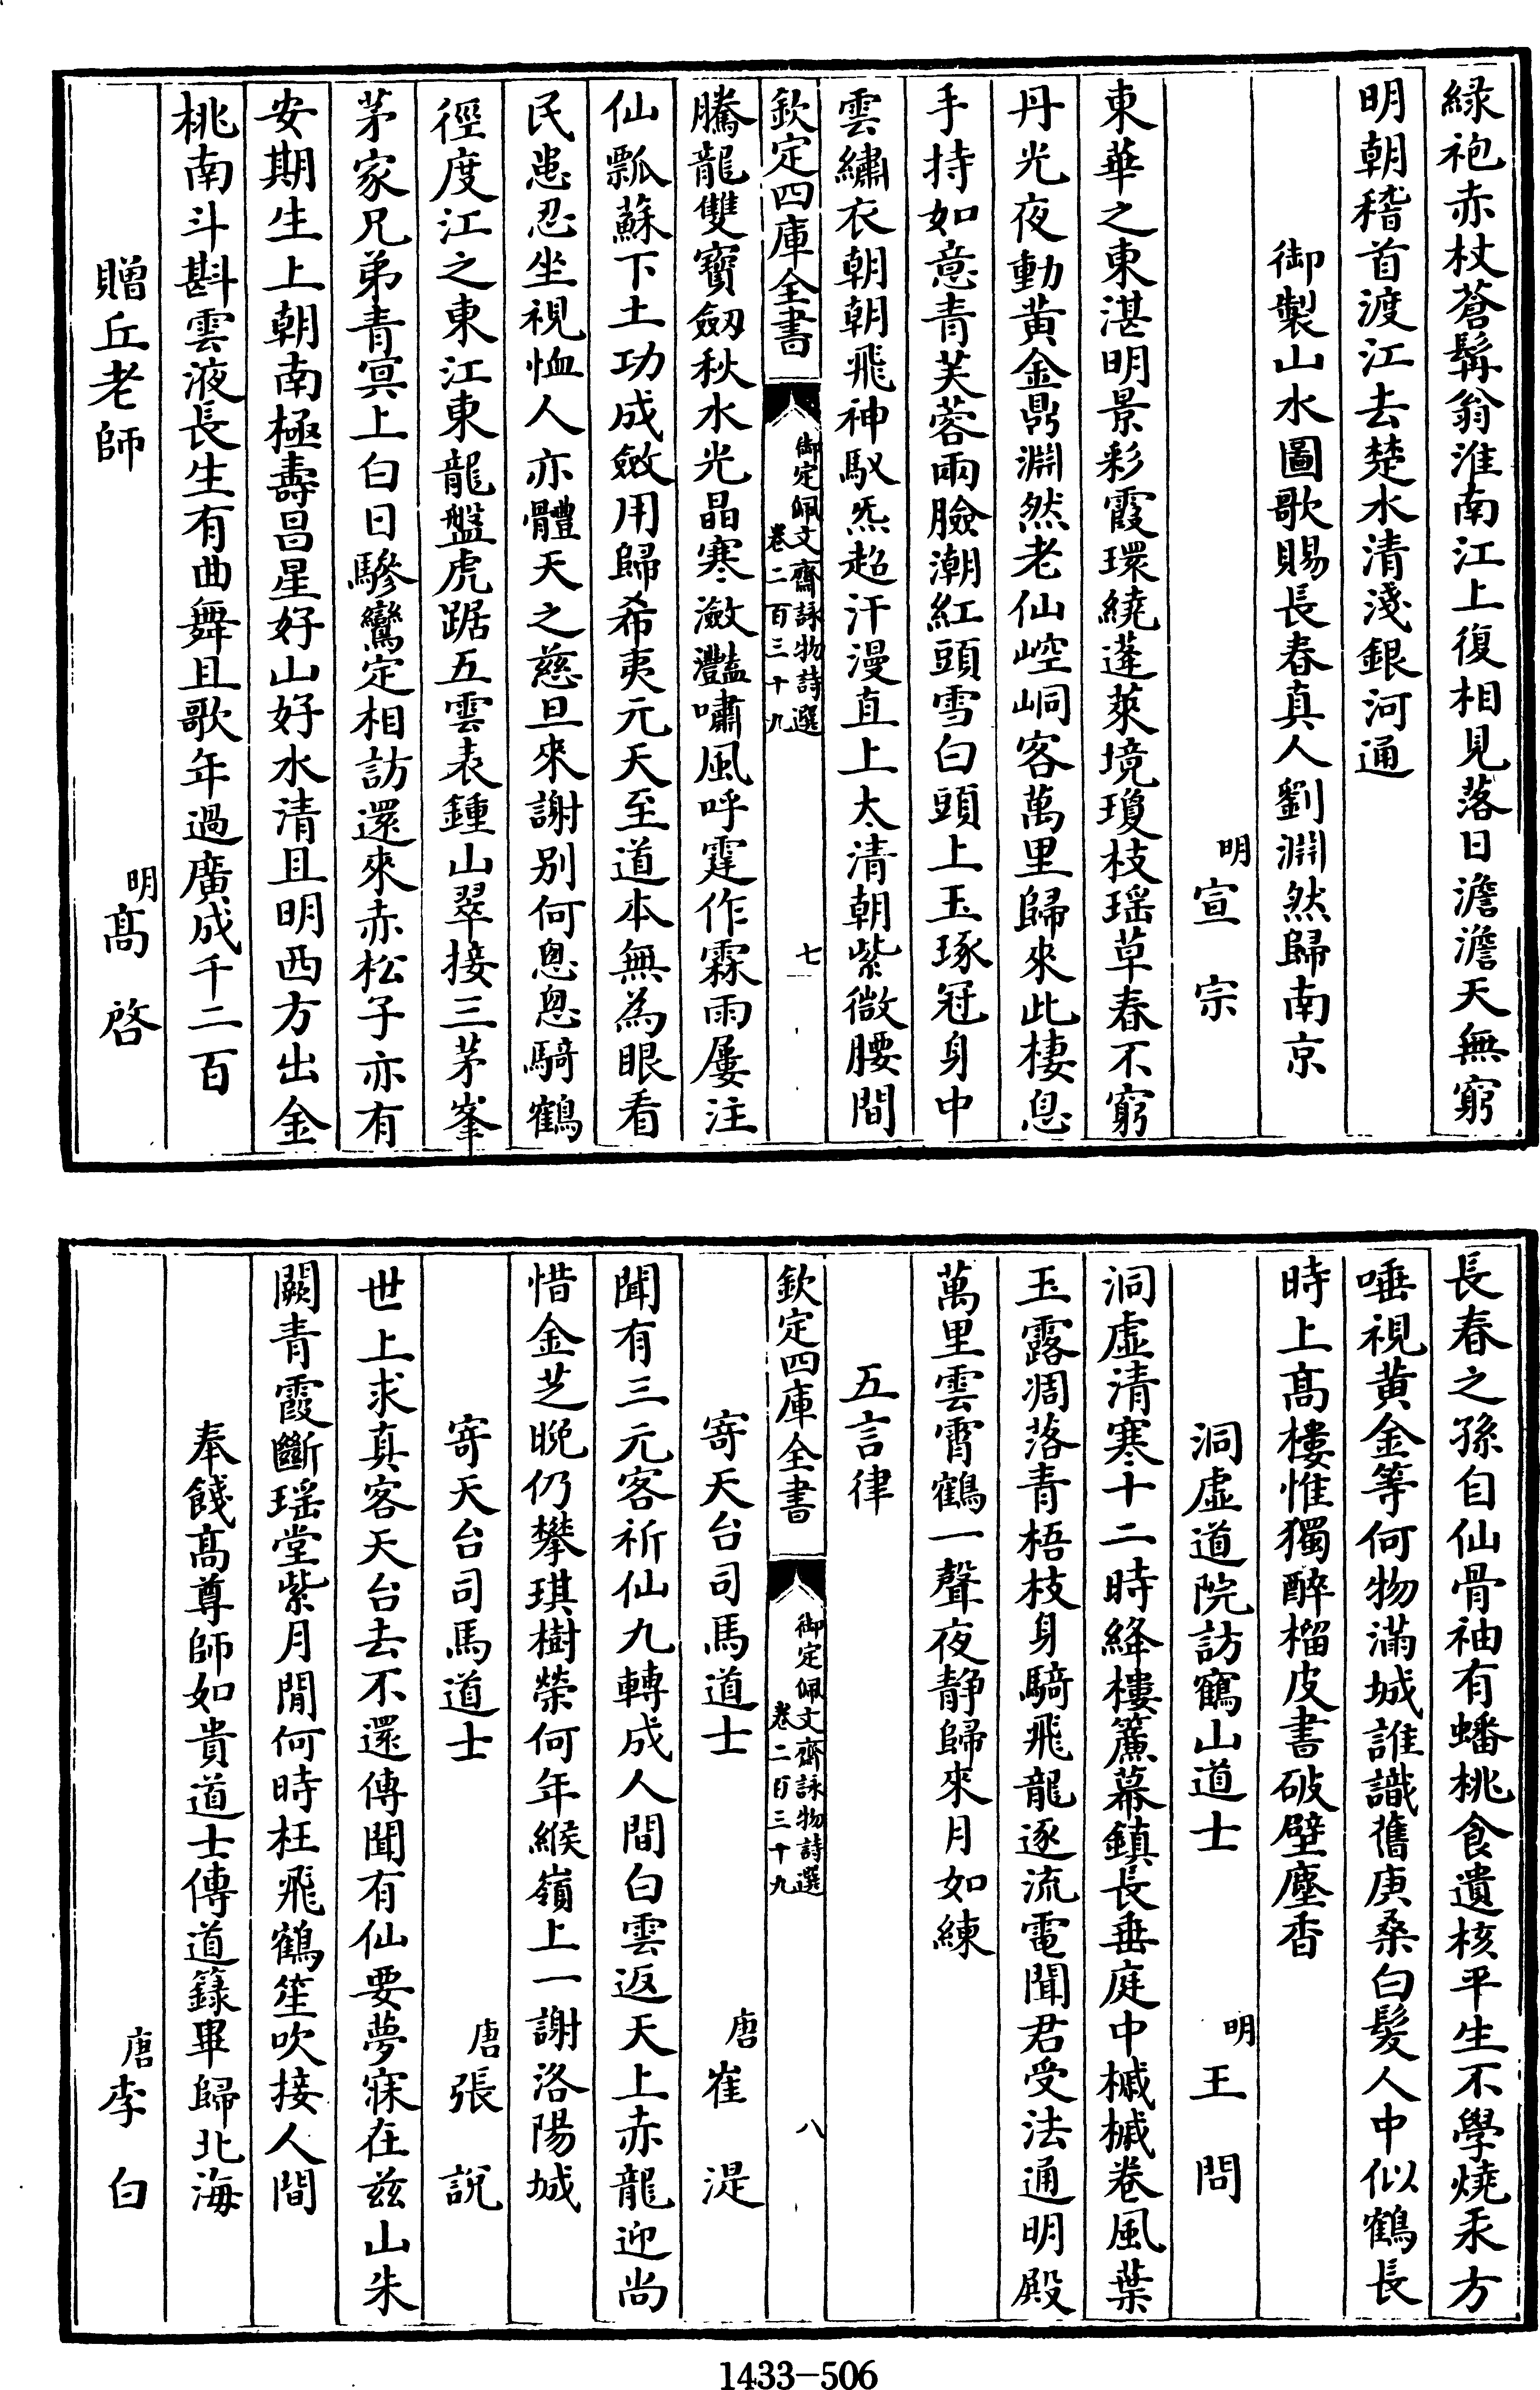 緑袍赤杖蒼髯翁淮南江上復相見落日澹澹天無窮
明朝稽首渡江去楚水清淺銀河通
御製山水圖歌賜長春真人劉淵然歸南京
明宣宗
東華之東湛明景彩霞環繞蓬萊境瓊枝瑶草春不窮
丹光夜動黄金鼎淵然老仙崆峒客萬里歸來此棲息
手持如意青芙蓉兩臉潮紅頭雪白頭上玉琢冠身中
雲繡衣朝朝飛神馭炁超汗漫直上太清朝紫微腰間
欽定四庫全書
御定佩文齋詠物詩選
卷二百三十九
七
騰龍雙寶劔秋水光晶寒瀲灩嘯風呼霆作霖雨屢注
仙瓢蘇下土功成斂用歸希夷元天至道本無為眼看
民患忍坐視恤人亦體天之慈旦來謝别何悤悤騎鶴
徑度江之東江東龍盤虎踞五雲表鍾山翠接三茅峯
茅家兄弟青冥上白日驂鸞定相訪還來赤松子亦有
安期生上朝南極壽昌星好山好水清且明西方出金
桃南斗斟雲液長生有曲舞且歌年過廣成千二百
贈丘老師
明髙啓
長春之孫自仙骨袖有蟠桃食遺核平生不學燒汞方
唾視黄金等何物滿城誰識舊庚桑白髮人中似鶴長
時上髙樓惟獨醉榴皮書破壁塵香
洞虚道院訪鶴山道士
明王問
洞虚清寒十二時絳樓簾幕鎮長垂庭中槭槭卷風葉
玉露凋落青梧枝身騎飛龍逐流電聞君受法通明殿
萬里雲霄鶴一聲夜静歸來月如練
五言律
欽定四庫全書
御定佩文齋詠物詩選
卷二百三十九
八
寄天台司馬道士
唐崔湜
聞有三元客祈仙九轉成人間白雲返天上赤龍迎尚
惜金芝晩仍攀琪樹榮何年緱嶺上一謝洛陽城
寄天台司馬道士
唐張說
世上求真客天台去不還傳聞有仙要夢寐在兹山朱
闕青霞斷瑶堂紫月閒何時枉飛鶴笙吹接人間
奉餞髙尊師如貴道士傳道籙畢歸北海
唐李白
1433-506